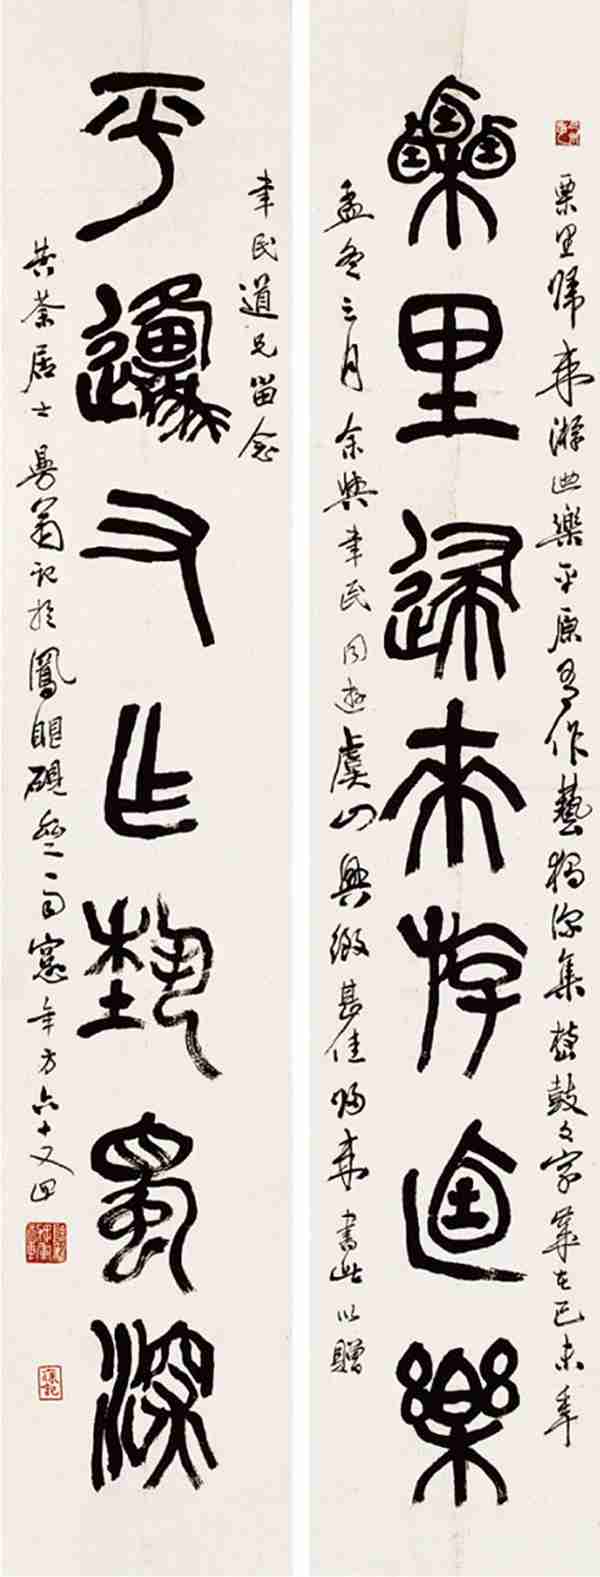 栗里歸來游迺樂平原有作藝獨深集石鼓文字歲在己未年
栗里歸來斿迺樂
孟冬三月余與聿民同遊虞山興緻甚佳歸來書此以贈
聿民道兄留念
平邍又乍埶蜀深
苦茶居士曼翁記於鳳眼硯齋雨窗年方六十又四